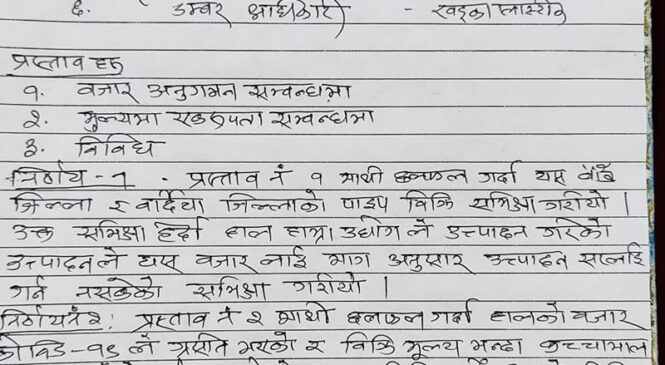 ६. डम्बर अधिकारी - खड्का प्लास्टिक
प्रस्ताव हरु
१. बजार अनुगमन सम्बन्धमा
२. मुल्यमा एकरुपता सम्बन्धमा
३. विविध
निर्णय - १ - प्रस्ताव नं १ माथी छलफल गर्दा यस बाँके
जिल्ला र बर्दिया जिल्लाको पाइप बिक्रि समिक्षा गरीयो ।
उक्त समिक्षा हेर्दा हाल हाम्रा उद्योग ले उत्पादन गरेको
उत्पादनले यस बजार लाई माग अनुसार उत्पादन सप्लाई
गर्न नसकेको समिक्षा गरीयो ।
निर्णय नं २: प्रस्ताव नं २ माथी छलफल गर्दा हालको बजार
कोभिड-१९ ले ग्रसित भएको र बिक्रि मूल्य भन्दा कच्चामाल